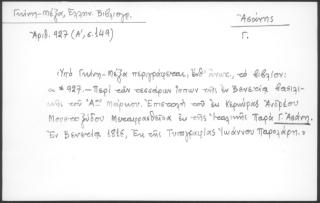 Γκίνη-Μέξα, Ἑλλην. Βιβλιογρ.
Ἀσάνης
Ἀριθ. 927 (Α', σ. 149)
Γ.
Ὑπὸ Γκίνη-Μέξα περιγράφεται, ἐνθ' ἀνωτ., τὸ βιβλίον:
« * 927. – Περὶ τῶν τεσσάρων ἵππων τῆς ἐν Βενετίᾳ βασιλι-
κῆς τοῦ Ἁγ. Μάρκου. Ἐπιστολὴ τοῦ ἐκ Κερκύρας Ἀνδρέου
Μουστοξύδου Μεταφρασθεῖσα ἐκ τῆς Ἰταλικῆς Παρὰ Γ. Ἀσάνη.
Ἐν Βενετίᾳ 1816, Ἐκ τῆς Τυπογραφίας Ἰωάννου Παρολάρη. »